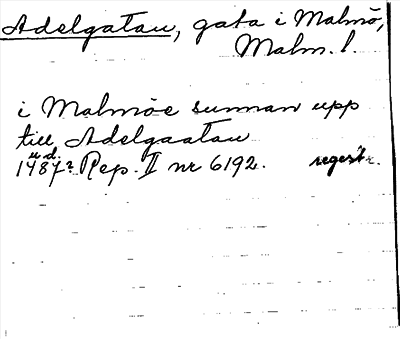 Adelgatan, gata i Malmö,
Malm. l.
i Malmöe sunnan upp
till Adelgaatan
u.d.
1487? Rep. II nr 6192. regestr.